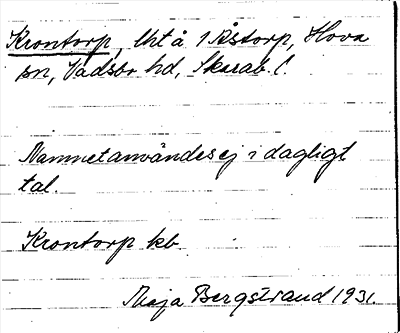 Krontorp, lht å 1 Åstorp, Hova
sn, Vadsbo hd, Skarab. l.
Namnet användes ej i dagligt
tal.
Krontorp kb.
Maja Bergstrand 1931.